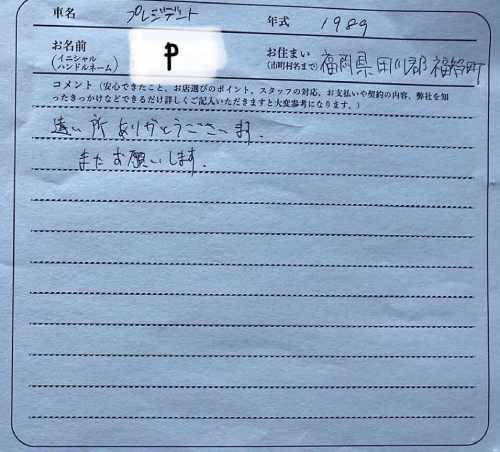 車名 プレジデント 年式 1989
お名前 (イニシャル ハンドルネーム) P お住まい (市町村名まで) 福岡県田川郡福智町
コメント（安心できたこと、お店選びのポイント、スタッフの対応、お支払いや契約の内容、弊社を知
ったきっかけなどできるだけ詳しくご記入いただきますと大変参考になります。）
遠い所ありがとうございます.
またお願いします.